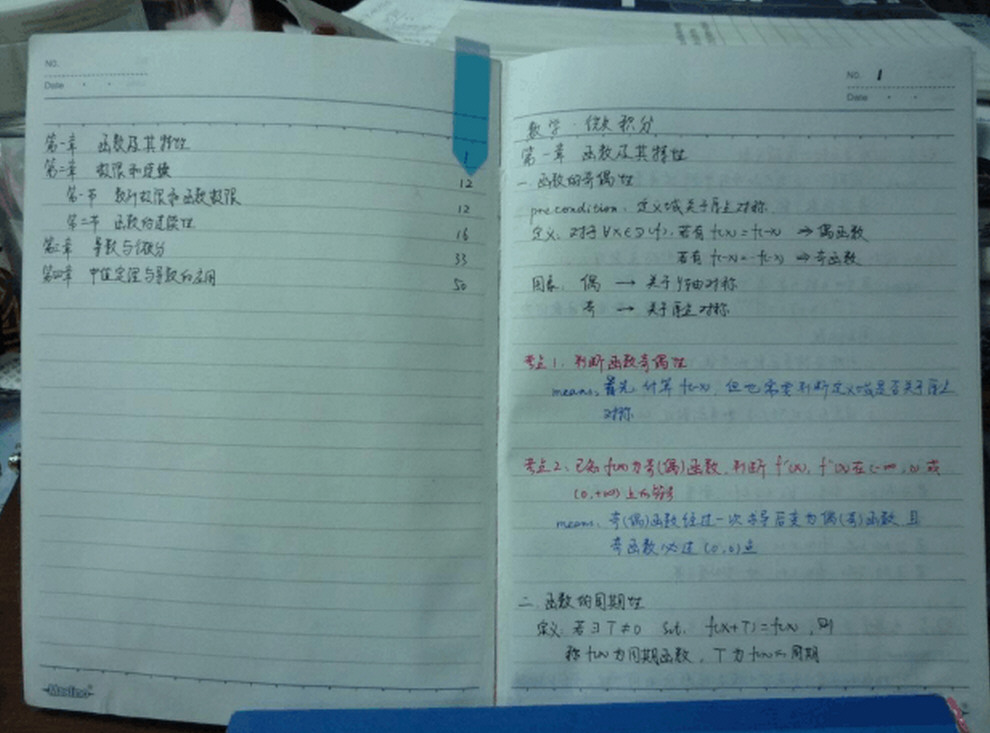 NO.
Date
第一章 函数及其特性 1
第二章 极限和连续 12
第一节 数列极限和函数极限 12
第二节 函数的连续性 16
第三章 导数与微分 33
第四章 中值定理与导数的应用 50
Maxleaf
NO. 1
Date
数学·微积分
第一章 函数及其特性
一. 函数的奇偶性
precondition: 定义域关于原点对称.
定义: 对于∀x∈D(f), 若有 f(x)=f(-x) ⇒偶函数
若有 f(-x)=-f(x) ⇒奇函数
图象: 偶 → 关于y轴对称
奇 → 关于原点对称
考点1、判断函数奇偶性
means: 首先计算f(-x), 但也需要判断定义域是否关于原点
对称
考点2、已知f(x)为奇(偶)函数, 判断f'(x), f''(x)在(-∞,0)或
(0,+∞)上の符号
means: 奇(偶)函数经过一次求导后变为偶(奇)函数, 且
奇函数必过(0,0)点
二. 函数的周期性
定义: 若∃T≠0 s.t. f(x+T)=f(x), 则
称f(x)为周期函数, T为f(x)の周期